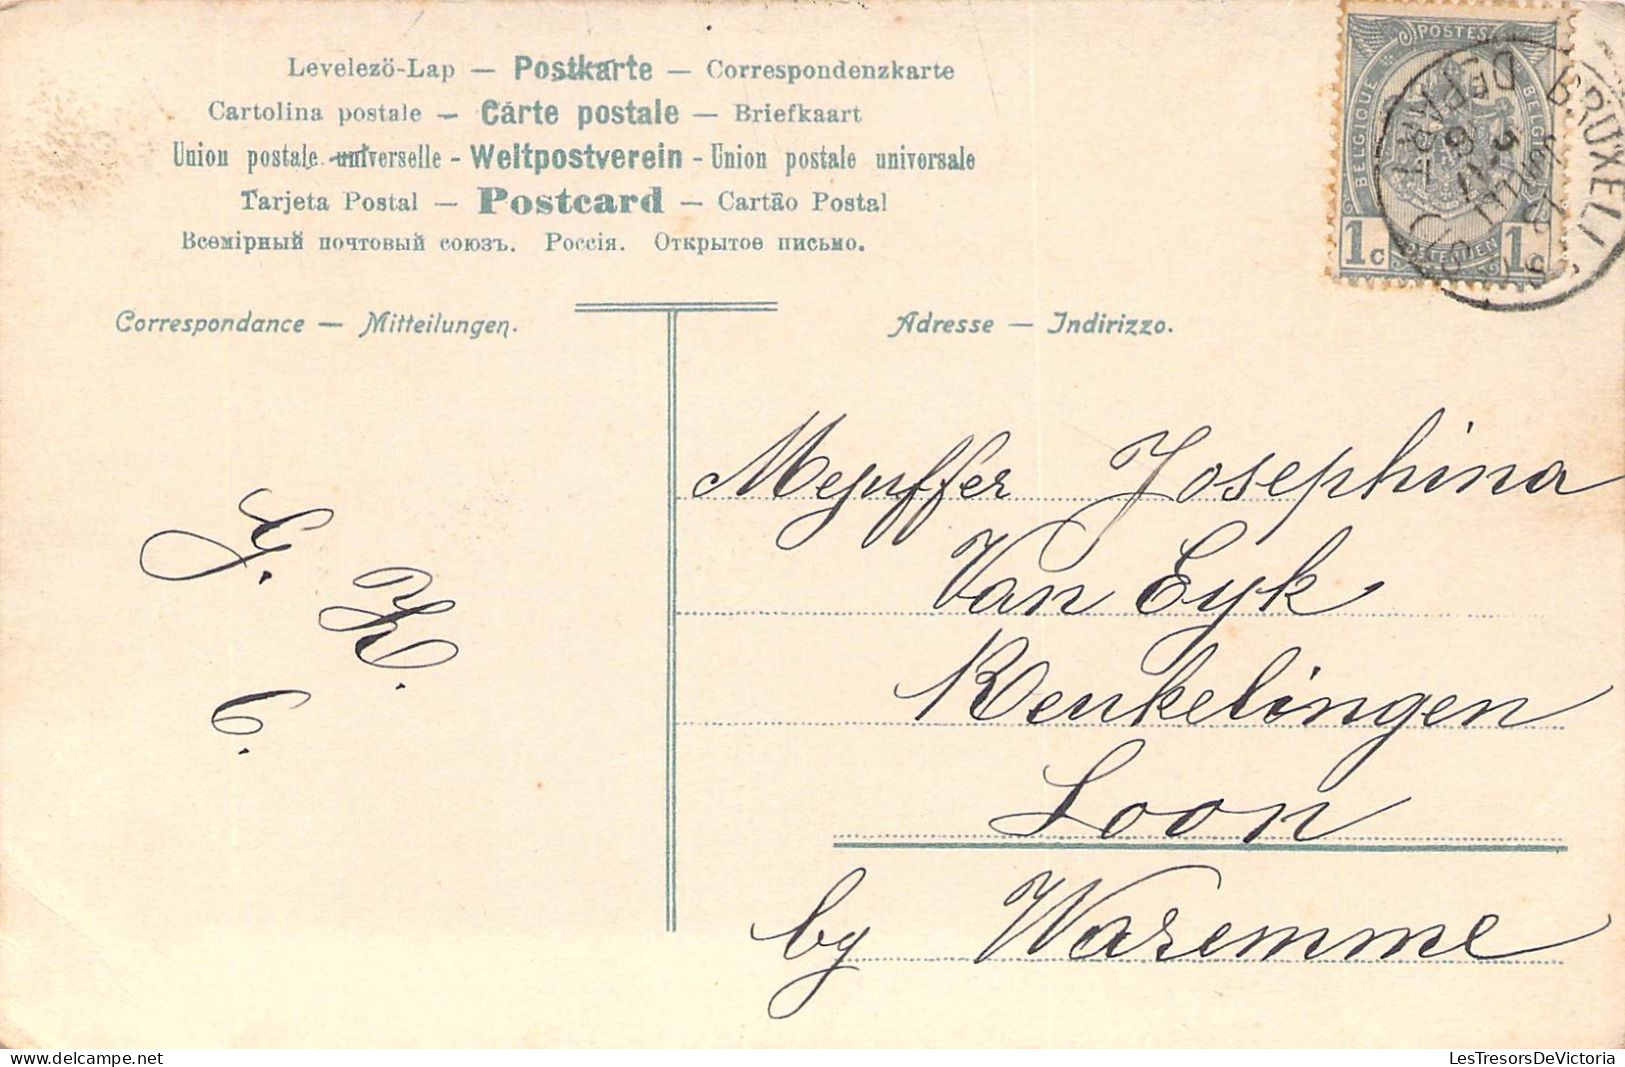 Levelezö-Lap — Postkarte — Correspondenzkarte
Cartolina postale — Carte postale — Briefkaart
Union postale universelle - Weltpostverein - Union postale universale
Tarjeta Postal — Postcard — Cartão Postal
Всемірный почтовый союзъ. Россія. Открытое письмо.
POSTES
BELGIQUE
BELGIE
1c
1c
BRUXELL
DEPART
Correspondance — Mitteilungen.
Adresse — Indirizzo.
G.
K.
C.
Mejuffer Josephina
Van Eyk
Kenkelingen
Loon
by Waremme
LesTresorsDeVictoria